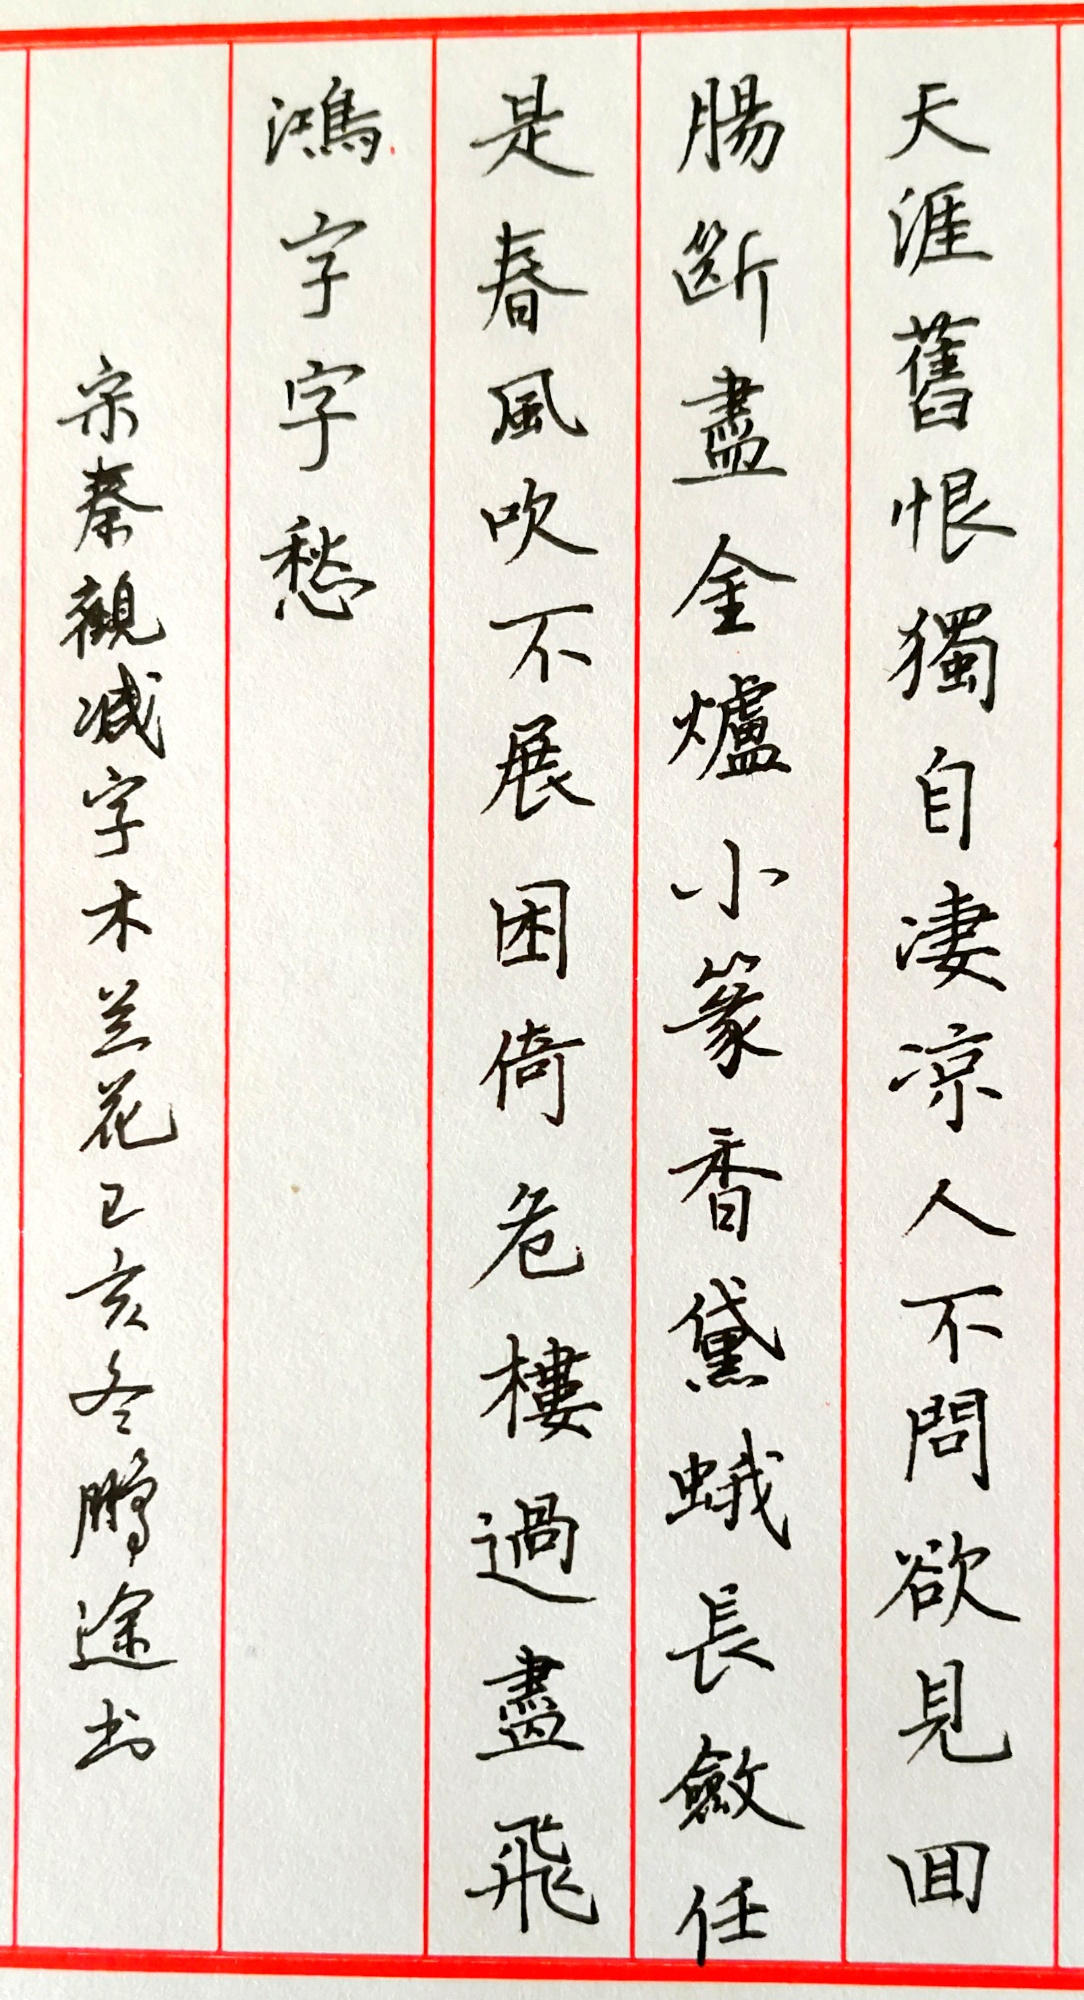 天涯舊恨獨自凄凉人不問欲見回
腸斷盡金爐小篆香黛蛾長斂任
是春風吹不展困倚危樓過盡飛
鴻字字愁
宋秦觀减字木兰花己亥冬鹏途书